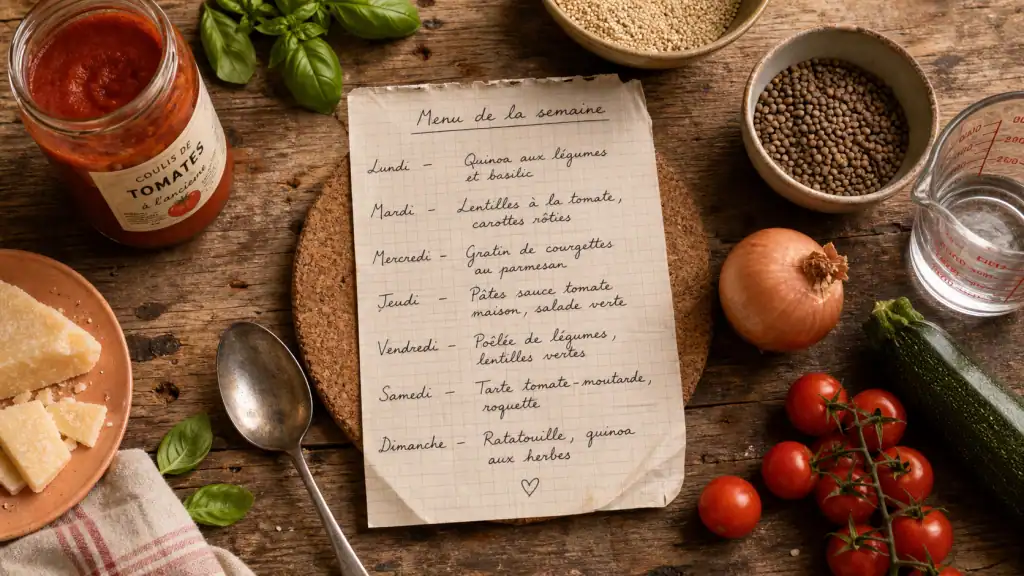 COULIS DE
TOMATES
à l'ancienne
Menu de la semaine
Lundi – Quinoa aux légumes
et basilic
Mardi – Lentilles à la tomate,
carottes rôties
Mercredi – Gratin de courgettes
au parmesan
Jeudi – Pâtes sauce tomate
maison, salade verte
Vendredi – Poêlée de légumes,
lentilles vertes
Samedi – Tarte tomate-moutarde,
roquette
Dimanche – Ratatouille, quinoa
aux herbes